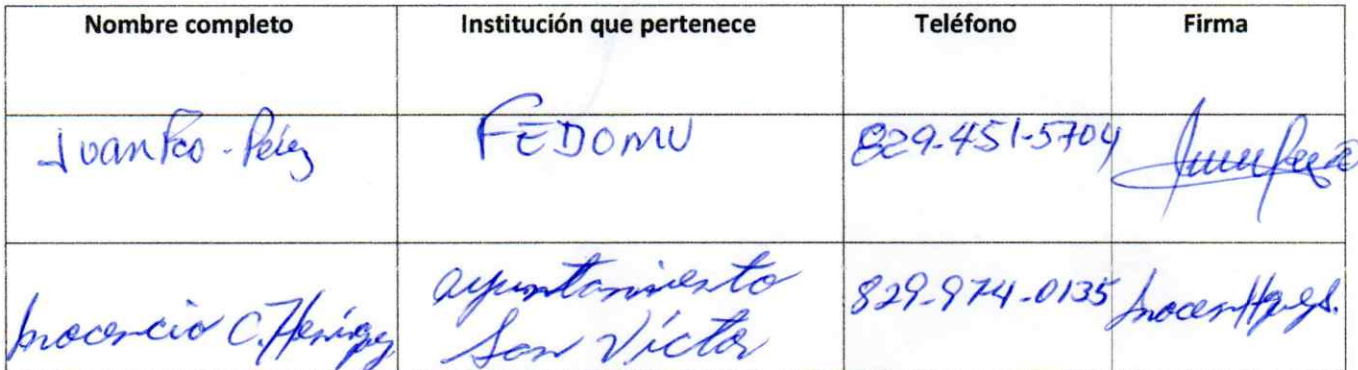 Nombre completo Institución que pertenece Teléfono Firma
Juan Fco. Pérez FEDOMU 829-451-5704
Inocencio C. ayuntamiento San Víctor 829-974-0135